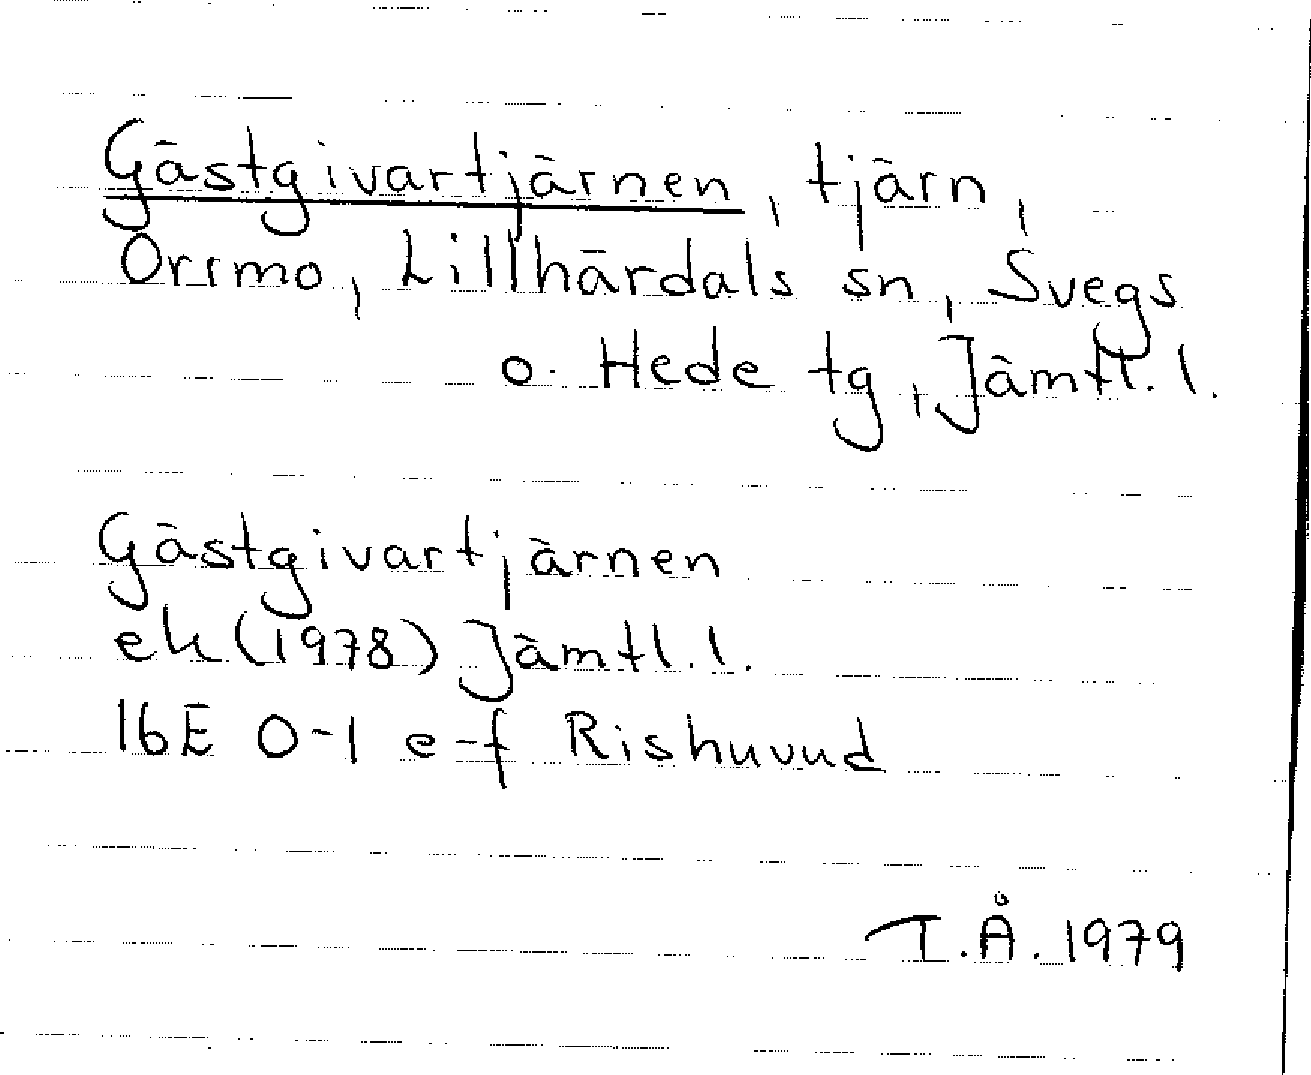 Gästgivartjärnen, tjärn,
Orrmo, Lillhärdals sn, Svegs
o. Hede tg, Jämtl. l.
Gästgivartjärnen
ek (1978) Jämtl. l.
16E 0-1 e-f Rishuvud
I.Å. 1979